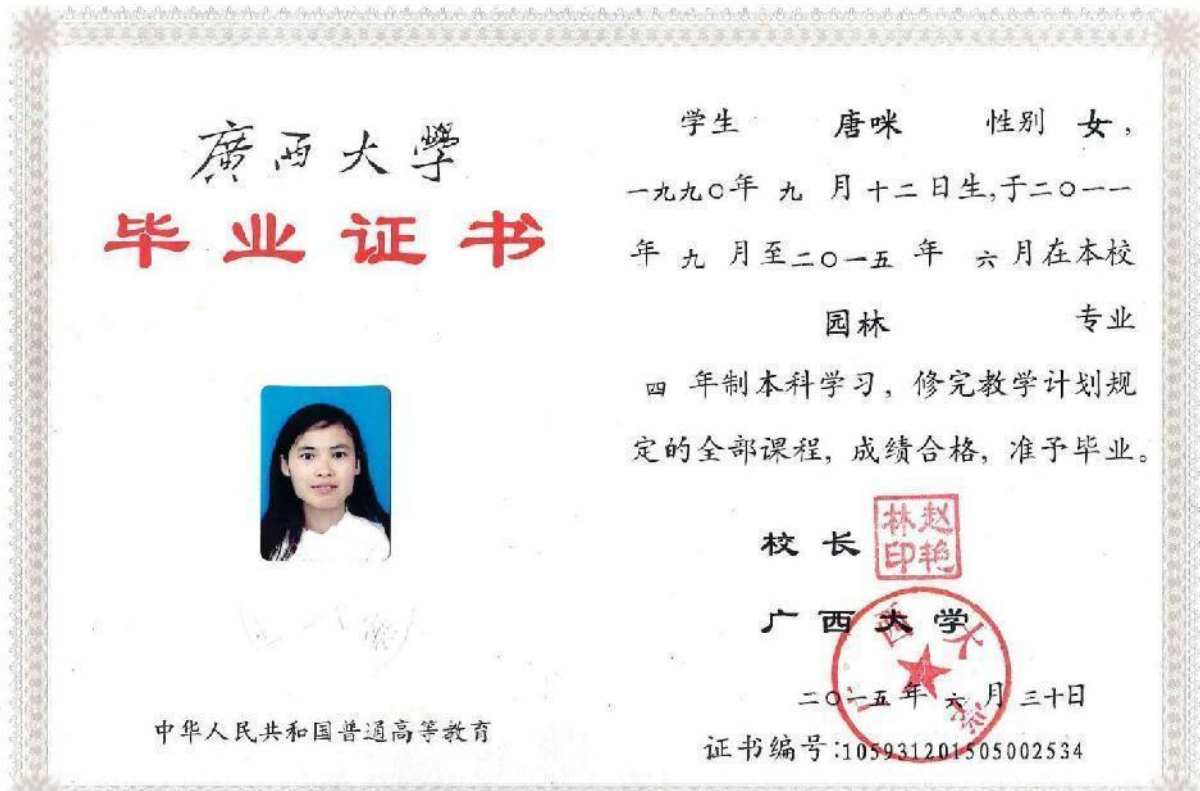 廣西大學
毕业证书
中华人民共和国普通高等教育
学生 唐咪 性别 女，
一九九〇年 九 月十二日生,于二〇一一
年 九 月至二〇一五 年 六 月在本校
园林 专业
四 年制本科学习，修完教学计划规
定的全部课程，成绩合格，准予毕业。
校长
赵艳林印
广西大学
广西大学
二〇一五年 六 月三十日
证书编号:105931201505002534